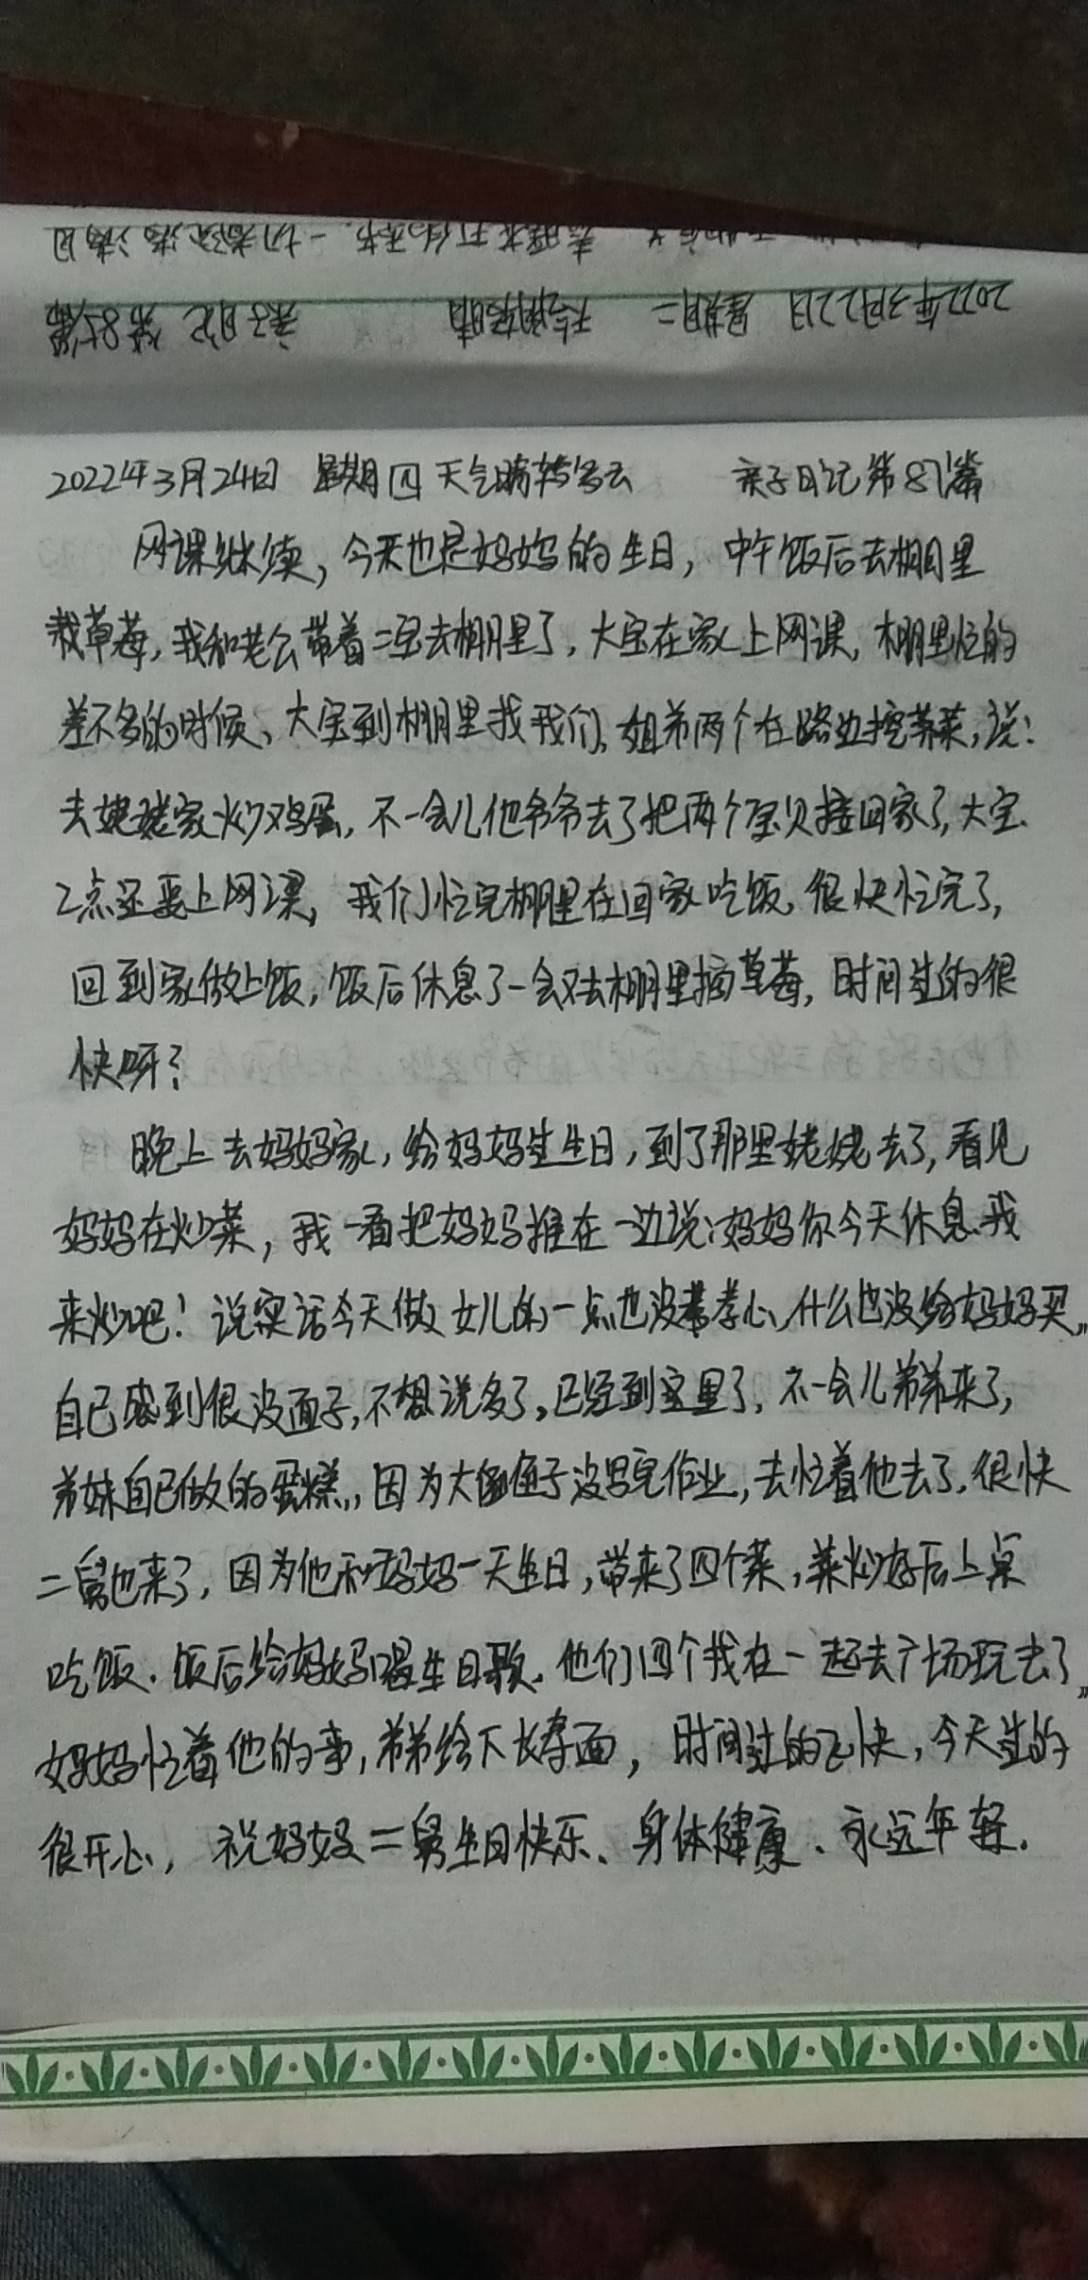 2022年3月22日 星期二 亲子日记 第85篇
2022年3月24日 星期四 天气晴转多云 亲子日记第87篇
网课继续，今天也是妈妈的生日，中午饭后去棚里
栽草莓，我和老公带着二宝去棚里了，大宝在家上网课，棚里忙的
差不多的时候、大宝到棚里找我们，姐弟两个在路边挖荠菜，说：
去姥姥家炒鸡蛋，不一会儿他爷爷去了把两个宝贝接回家了，大宝
2点还要上网课，我们忙完棚里在回家吃饭，很快忙完了，
回到家做上饭，饭后休息了一会又去棚里摘草莓，时间过的很
快呀？
晚上去妈妈家，给妈妈过生日，到了那里姥姥去了，看见
妈妈在炒菜，我一看把妈妈推在一边说：妈妈你今天休息我
来炒吧！说实话今天做女儿的一点也没带孝心，什么也没给妈妈买，
自己感到很没面子，不想说多了，已经到这里了，不一会儿弟弟来了，
弟妹自己做的蛋糕，因为大侄子没写完作业，去忙着他去了，很快
二舅也来了，因为他和妈妈一天生日，带来了四个菜，菜炒好后上桌
吃饭，饭后给妈妈唱生日歌，他们四个找在一起去广场玩去了，
妈妈忙着他的事，弟弟给下长寿面，时间过的飞快，今天过的
很开心，祝妈妈二舅生日快乐、身体健康、永远年轻.